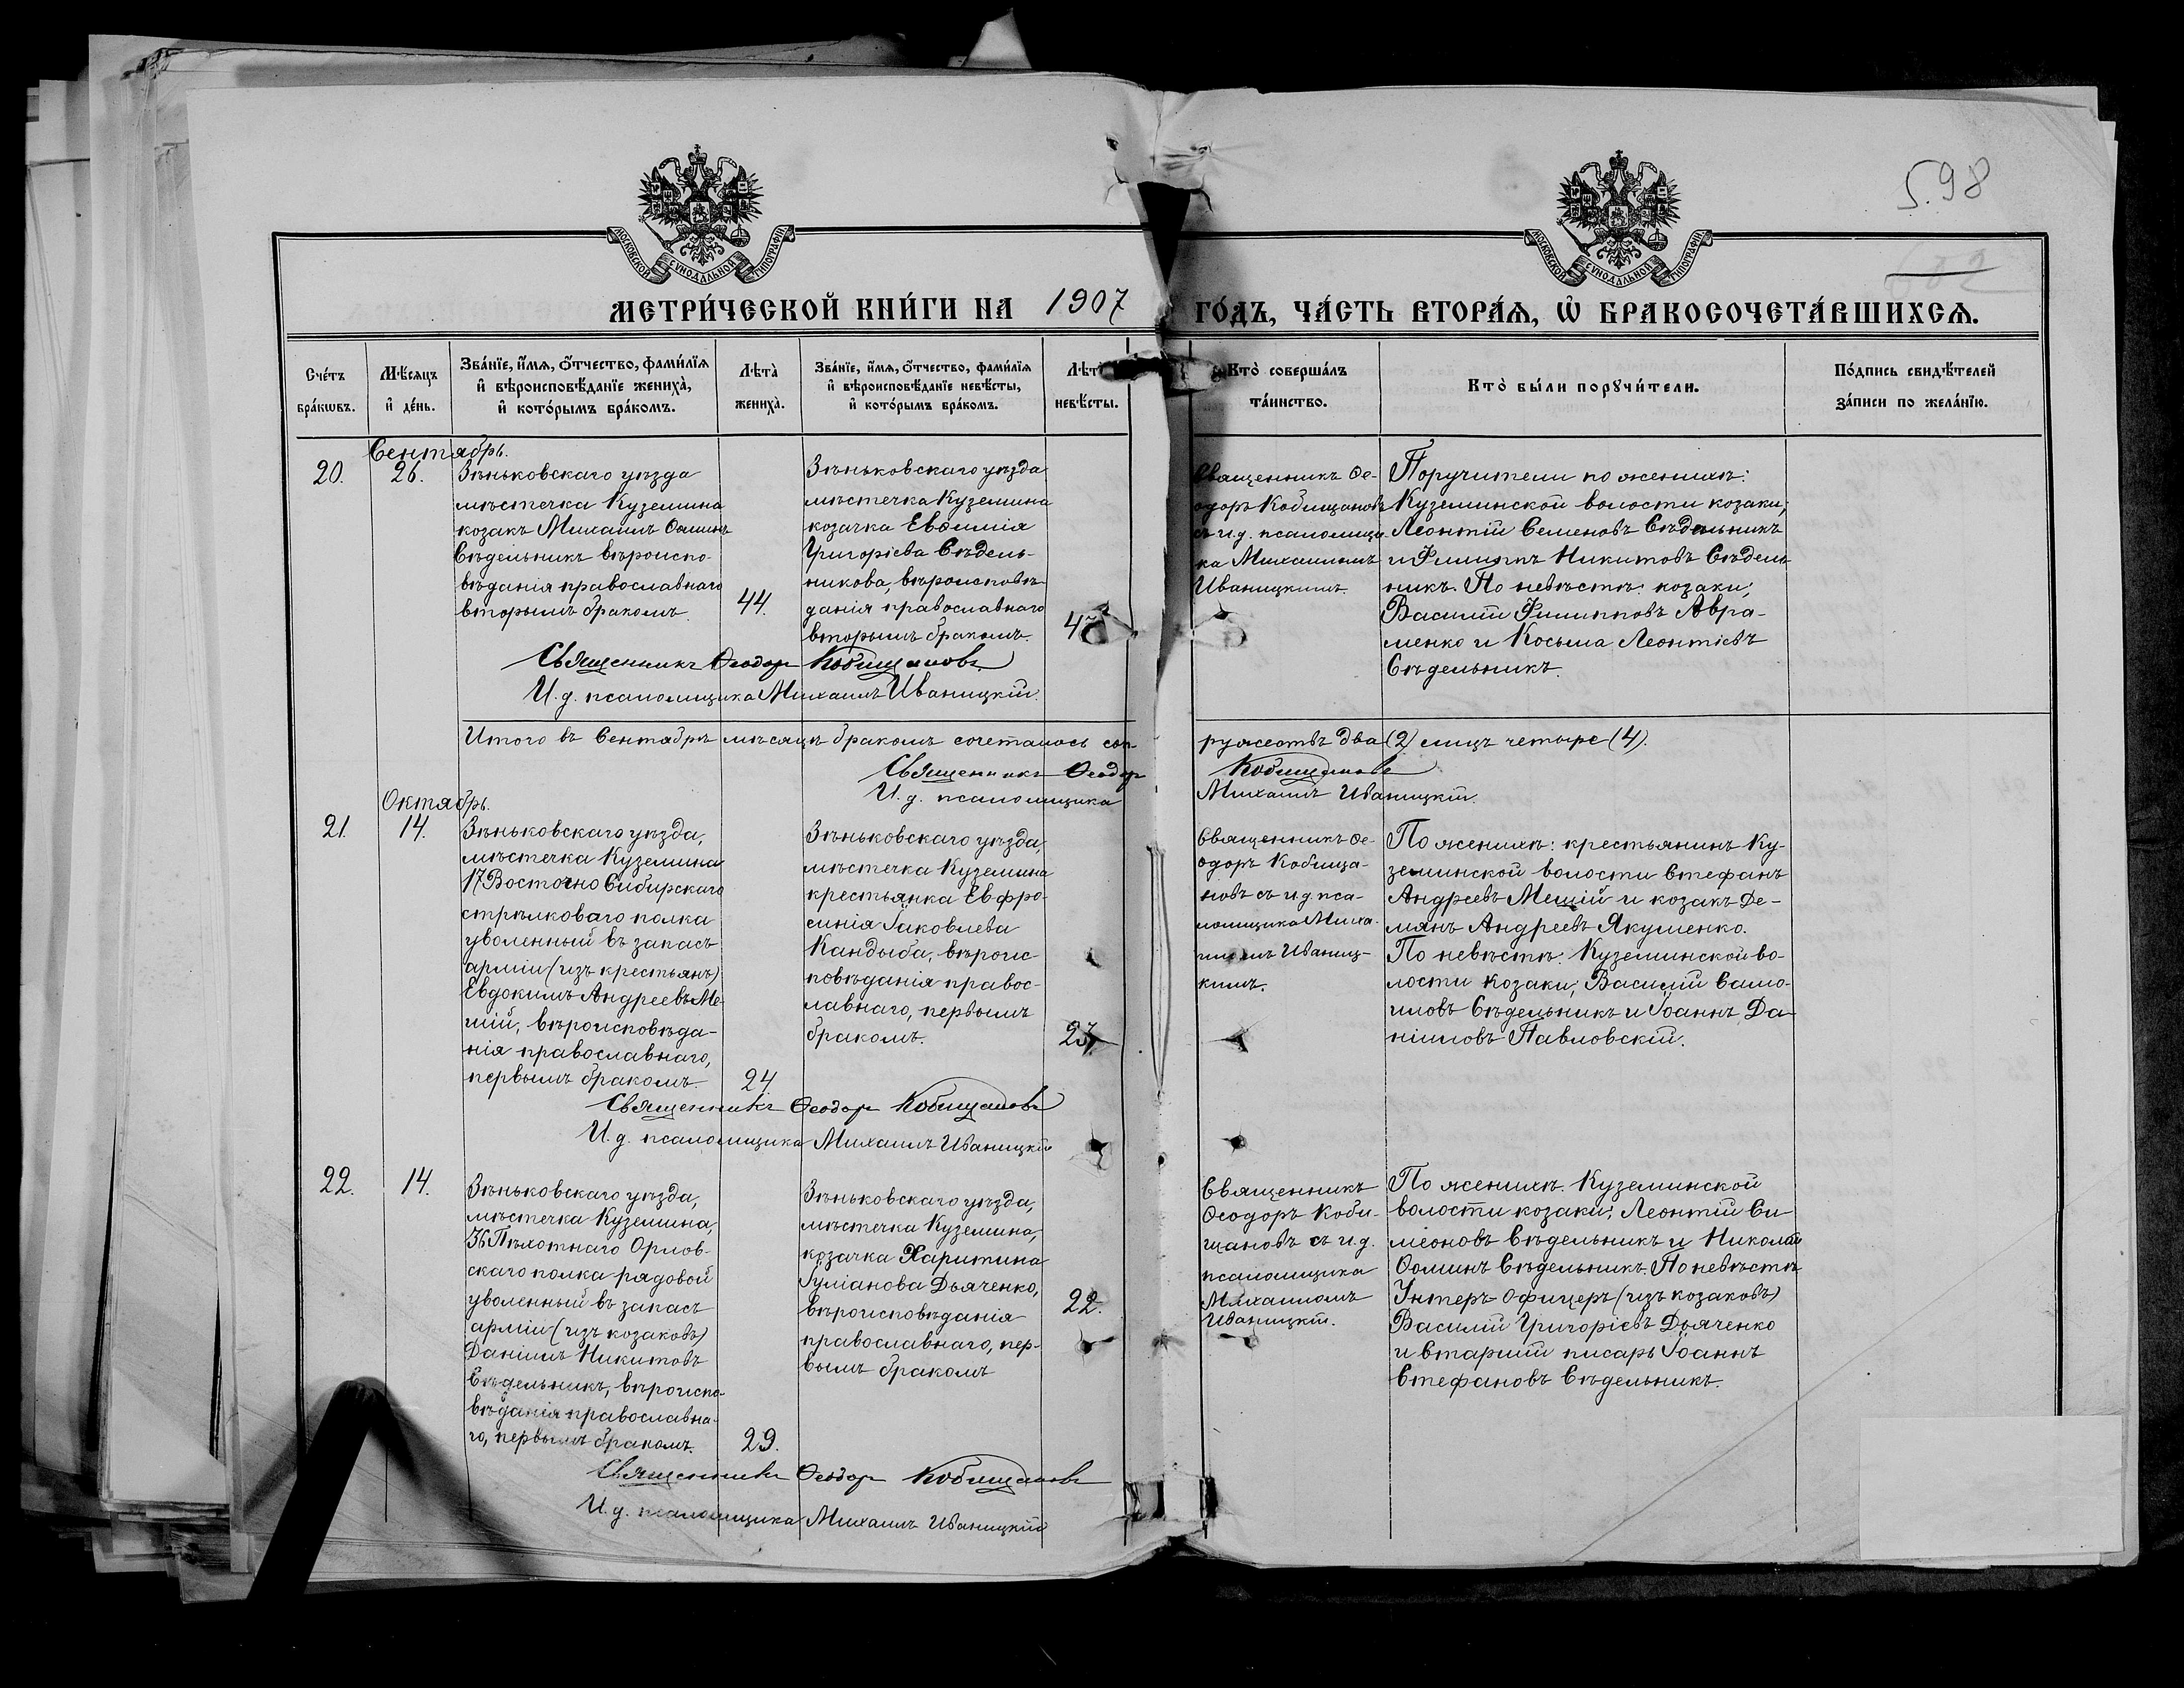 598
МОСКОВСКОЙ СУНОДАЛЬНОЙ ТИПОГРАФІИ
МОСКОВСКОЙ СУНОДАЛЬНОЙ ТИПОГРАФІИ
МЕТРИ́ЧЕСКОЙ КНИ́ГИ НА 1907 ГО́ДЪ, ЧА́СТЬ ВТОРА́Ѧ, Ѽ БРАКОСОЧЕТА́ВШИХСѦ.
Сче́тъ бра́кѡвъ.
Мѣ́сяцъ и҆ де́нь.
Зва́нїе, и҆́мя, ѻ҆́тчество, фами́лїя
и҆ вѣроисповѣ́данїе жениха̀,
и҆ кото́рымъ бра́комъ.
Лѣта̀ жениха̀.
Зва́нїе, и҆́мя, ѻ҆́тчество, фами́лїя
и҆ вѣроисповѣ́данїе невѣ́сты,
и҆ кото́рымъ бра́комъ.
Лѣт невѣ́сты.
Кто̀ соверша́лъ
та́инство.
Кто̀ бы́ли порꙋчи́тели.
По́дпись свидѣ́телей
за́писи по жела́нїю.
Сентябрь.
20.
26.
Зѣньковскаго уѣзда
мѣстечка Куземина
козакъ Михаилъ Ѳоминъ
Сѣдельникъ вѣроиспо-
вѣданія православнаго
вторымъ бракомъ.
44.
Зѣньковскаго уѣзда
мѣстечка Куземина
козачка Евфимія
Григоріева Сѣдель-
никова, вѣроисповѣ-
данія православнаго
вторымъ бракомъ.
Священникъ Ѳе-
одоръ Кобищановъ
съ и.д. псаломщи-
ка Михаиломъ
Иваницкимъ.
Поручители по женихѣ:
Куземинской волости козаки;
Леонтій Семеновъ Сѣдельникъ
и Филиппъ Никитовъ Сѣдель-
никъ. По невѣстѣ: козаки;
Василій Филипповъ Авра-
менко и Косьма Леонтіевъ
Сѣдельникъ.
Священникъ Ѳеодоръ Кобищановъ
И.д. псаломщика Михаилъ Иваницкій.
Итого въ Сентябрѣ мѣсяцѣ бракомъ сочеталось суп-
ружествъ два (2) лицъ четыре (4).
Священникъ Ѳеодоръ Кобищановъ
И.д. псаломщика Михаилъ Иваницкій.
Октябрь.
21.
14.
Зѣньковскаго уѣзда,
мѣстечка Куземина
17 Восточно Сибирскаго
стрѣлковаго полка
уволенный въ запасъ
арміи (изъ крестьянъ)
Евдокимъ Андреевъ Ме-
шій, вѣроисповѣда-
нія православнаго,
первымъ бракомъ.
24
Зѣньковскаго уѣзда,
мѣстечка Куземина
крестьянка Евфро-
синія Іаковлева
Кандыба, вѣроис-
повѣданія правос-
лавнаго, первымъ
бракомъ.
Священникъ Ѳе-
одоръ Кобища-
новъ съ и.д. пса-
ломщика Миха-
иломъ Иваниц-
кимъ.
По женихѣ: крестьянинъ Ку-
земинской волости Стефанъ
Андреевъ Мешій и козакъ Де-
мянъ Андреевъ Якушенко.
По невѣстѣ: Куземинской во-
лости козаки; Василій Само-
иловъ Сѣдельникъ и Іоаннъ Да-
ніиловъ Павловскій.
Священникъ Ѳеодоръ Кобищановъ
И.д. псаломщика Михаилъ Иваницкій
22.
14.
Зѣньковскаго уѣзда,
мѣстечка Куземина,
36 Пѣхотнаго Орлов-
скаго полка рядовой
уволенный въ запасъ
арміи (изъ козаковъ)
Даніилъ Никитовъ
Сѣдельникъ, вѣроиспо-
вѣданія православна-
го, первымъ бракомъ.
29.
Зѣньковскаго уѣзда,
мѣстечка Куземина,
козачка Харитина
Іуліанова Дьяченко,
вѣроисповѣданія
православнаго, пер-
вымъ бракомъ
22.
Священникъ
Ѳеодоръ Коби-
щановъ съ и.д.
псаломщика
Михаиломъ
Иваницкій.
По женихѣ. Куземинской
волости козаки; Леонтій Си-
меоновъ Сѣдельникъ и Николай
Ѳоминъ Сѣдельникъ. По невѣстѣ
Унтеръ-Офицеръ (изъ козаковъ)
Василій Григорієвъ Дьяченко
и старшій писарь Іоаннъ
Стефановъ Сѣдельникъ.
Священникъ Ѳеодоръ Кобищановъ
И.д. псаломщика Михаилъ Иваницкій